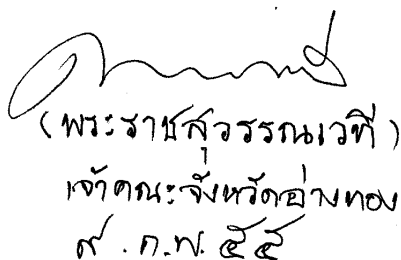 (พระราชสุวรรณเวที)
เจ้าคณะจังหวัดอ่างทอง
๙ . ก.พ. ๕๕